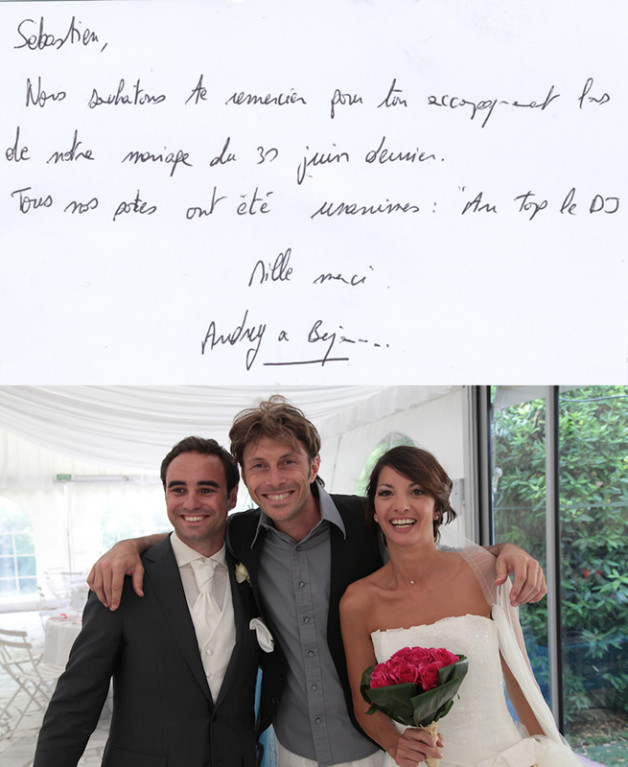 Sébastien,
Nous souhaitons te remercier pour ton accompagnement lors
de notre mariage du 30 juin dernier.
Tous nos potes ont été unanimes : "Au Top le DJ
Mille merci.
Audrey &